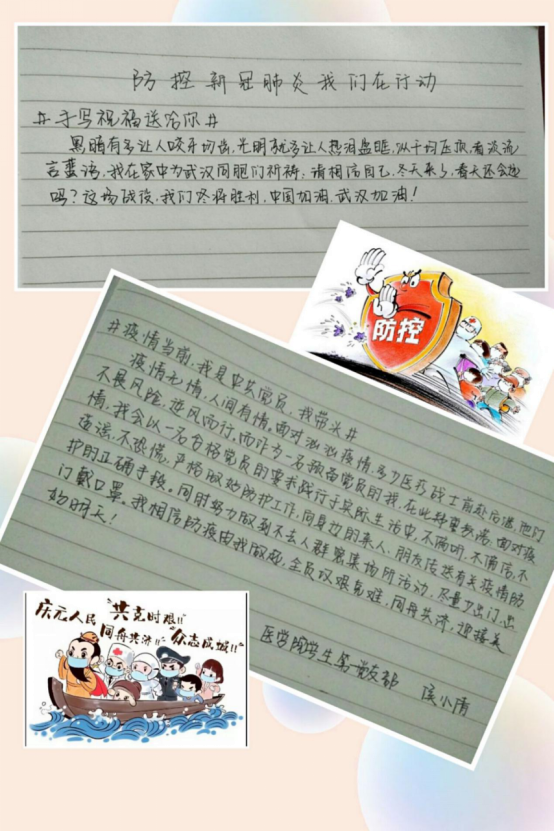 防控新冠肺炎我们在行动
#手写祝福送给你#
黑暗有多让人咬牙切齿,光明就多让人热泪盈眶,从千均压顶,看谈流
言蜚语,我在家中为武汉同胞们祈祷:请相信自己,冬天来了,春天还会远
吗?这场战役,我们终将胜利,中国加油,武汉加油!
防控
#疫情当前,我是中共党员,我带头#
疫情无情,人间有情,面对汹汹疫情,多少医疗战士前赴后继,他们
不畏风险,逆风而行,而作为一名预备党员的我,在此郑重承诺:面对疫
情,我会以一名合格党员的要求践行于实际生活中,不偏听,不偏信,不
造谣,不恐慌,严格做好防护工作,向身边的亲人、朋友传送有关疫情防
护的正确手段。同时努力做到不去人群密集场所活动,尽量少出门,出
门戴口罩。我相信防疫由我做起,全员攻艰克难,同舟共济,迎接美
好明天!
医学院学生第一党支部
庆元人民
"共克时艰!!
同舟共济!!
众志成城!!"